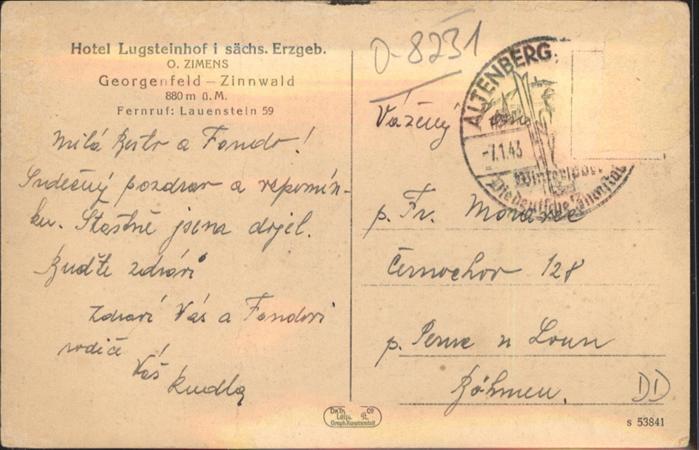 Hotel Lugsteinhof i sächs. Erzgeb.
O. ZIMENS
Georgenfeld – Zinnwald
880 m ü. M.
Fernruf: Lauenstein 59
Milá a Fando!
Srdečný pozdrav a vzpomín-
ku. Štastně jsem dojel.
Buďte zdrávi
Zdraví Vás a Fandovi
rodiče!
Váš
Rudla
D-8231
ALTENBERG
-7.1.43
Wintersport
Die deutsche
Vážený
p. Fr.
Černochov 128
p. Peruc u Loun
Böhmen.
DD
s 53841